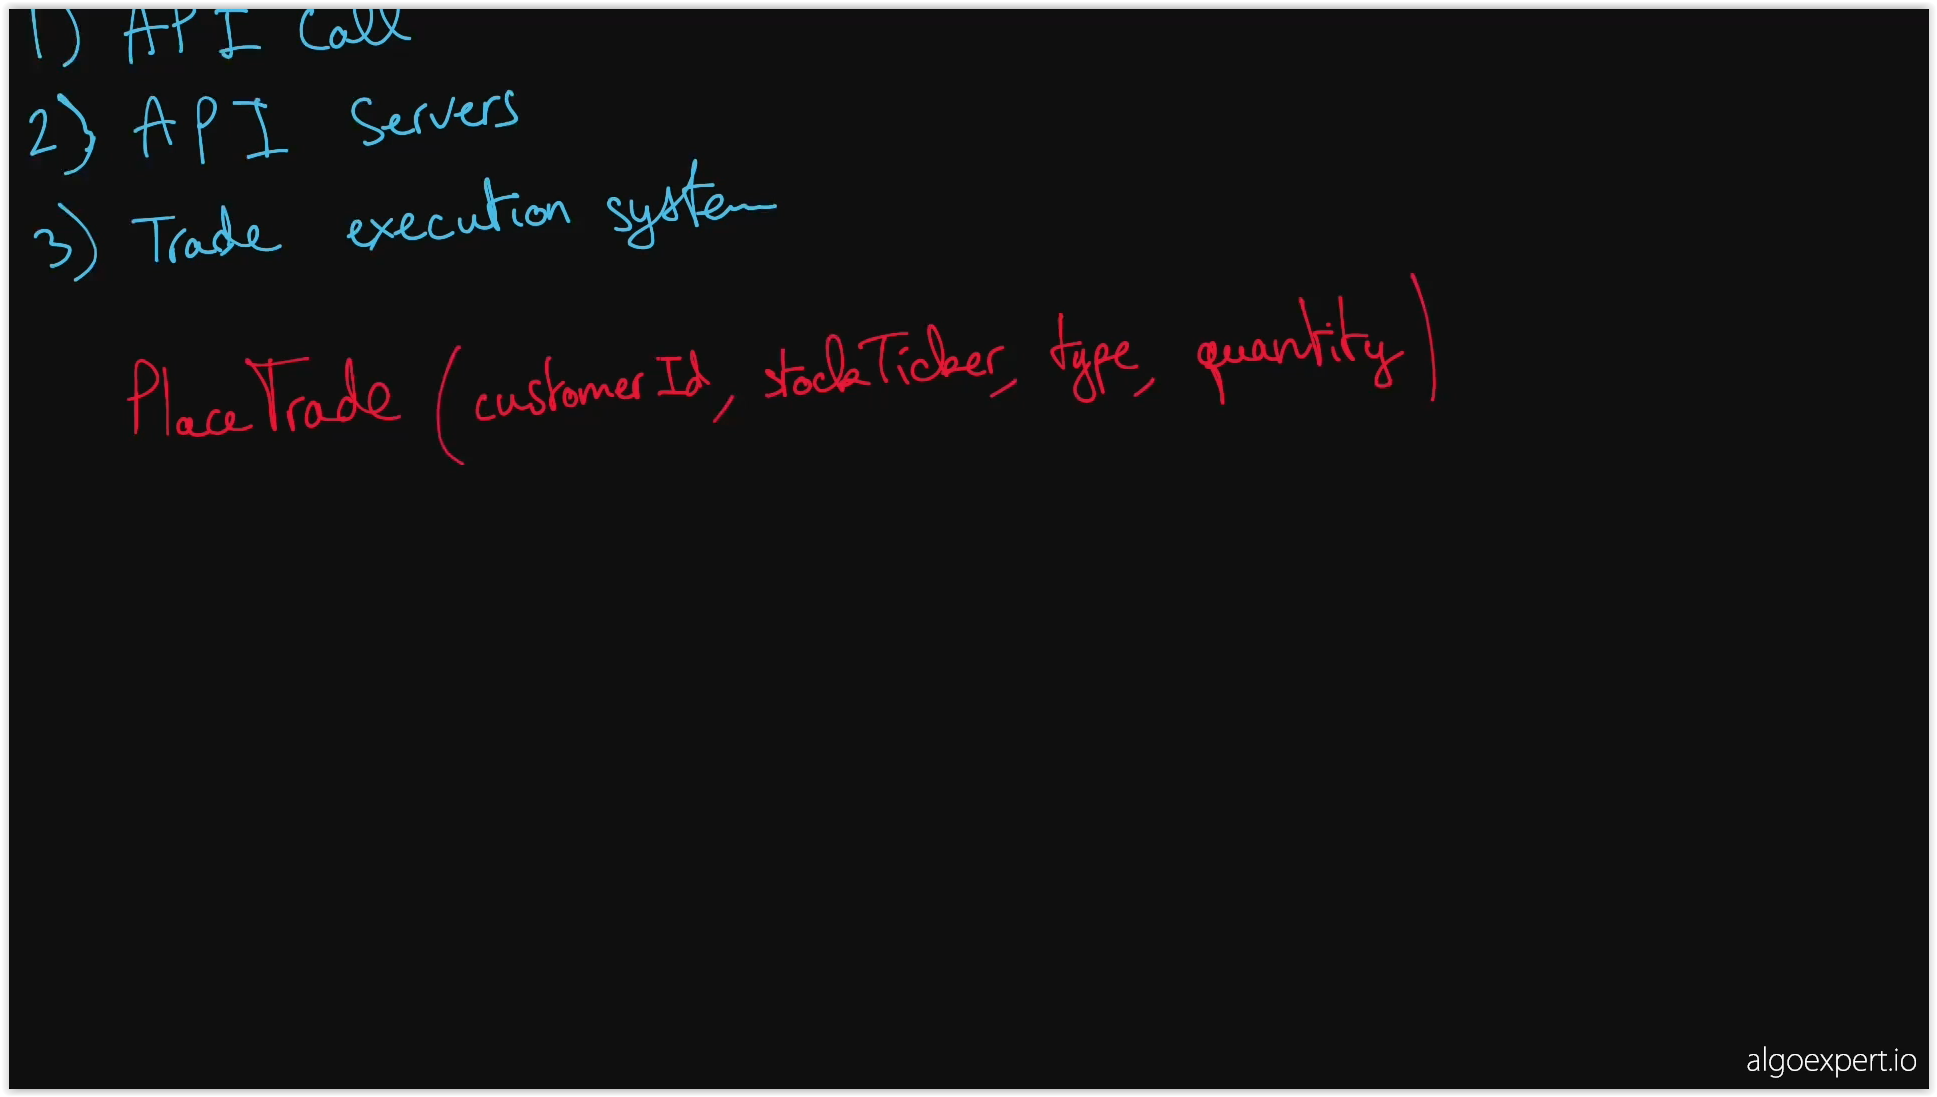 1) API Call
2) API Servers
3) Trade execution system
PlaceTrade (customerId, stockTicker, type, quantity)
algoexpert.io